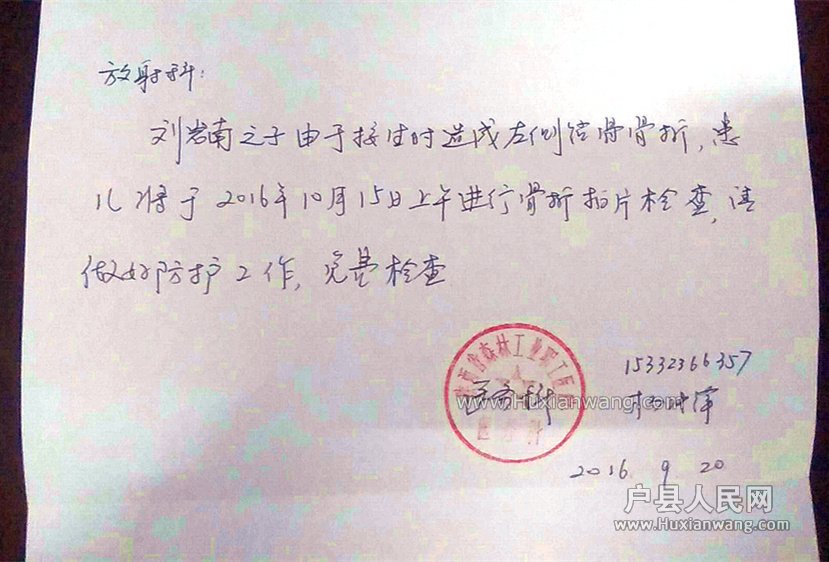 放射科：
刘岩南之子由于接生时造成左侧锁骨骨折，患
儿将于2016年10月15日上午进行骨折拍片检查，请
做好防护工作，免费检查
陕西省森林工业职工医院
15332366357
医务科
www.Huxianwang.com
2016. 9. 20
户县人民网
www.Huxianwang.com